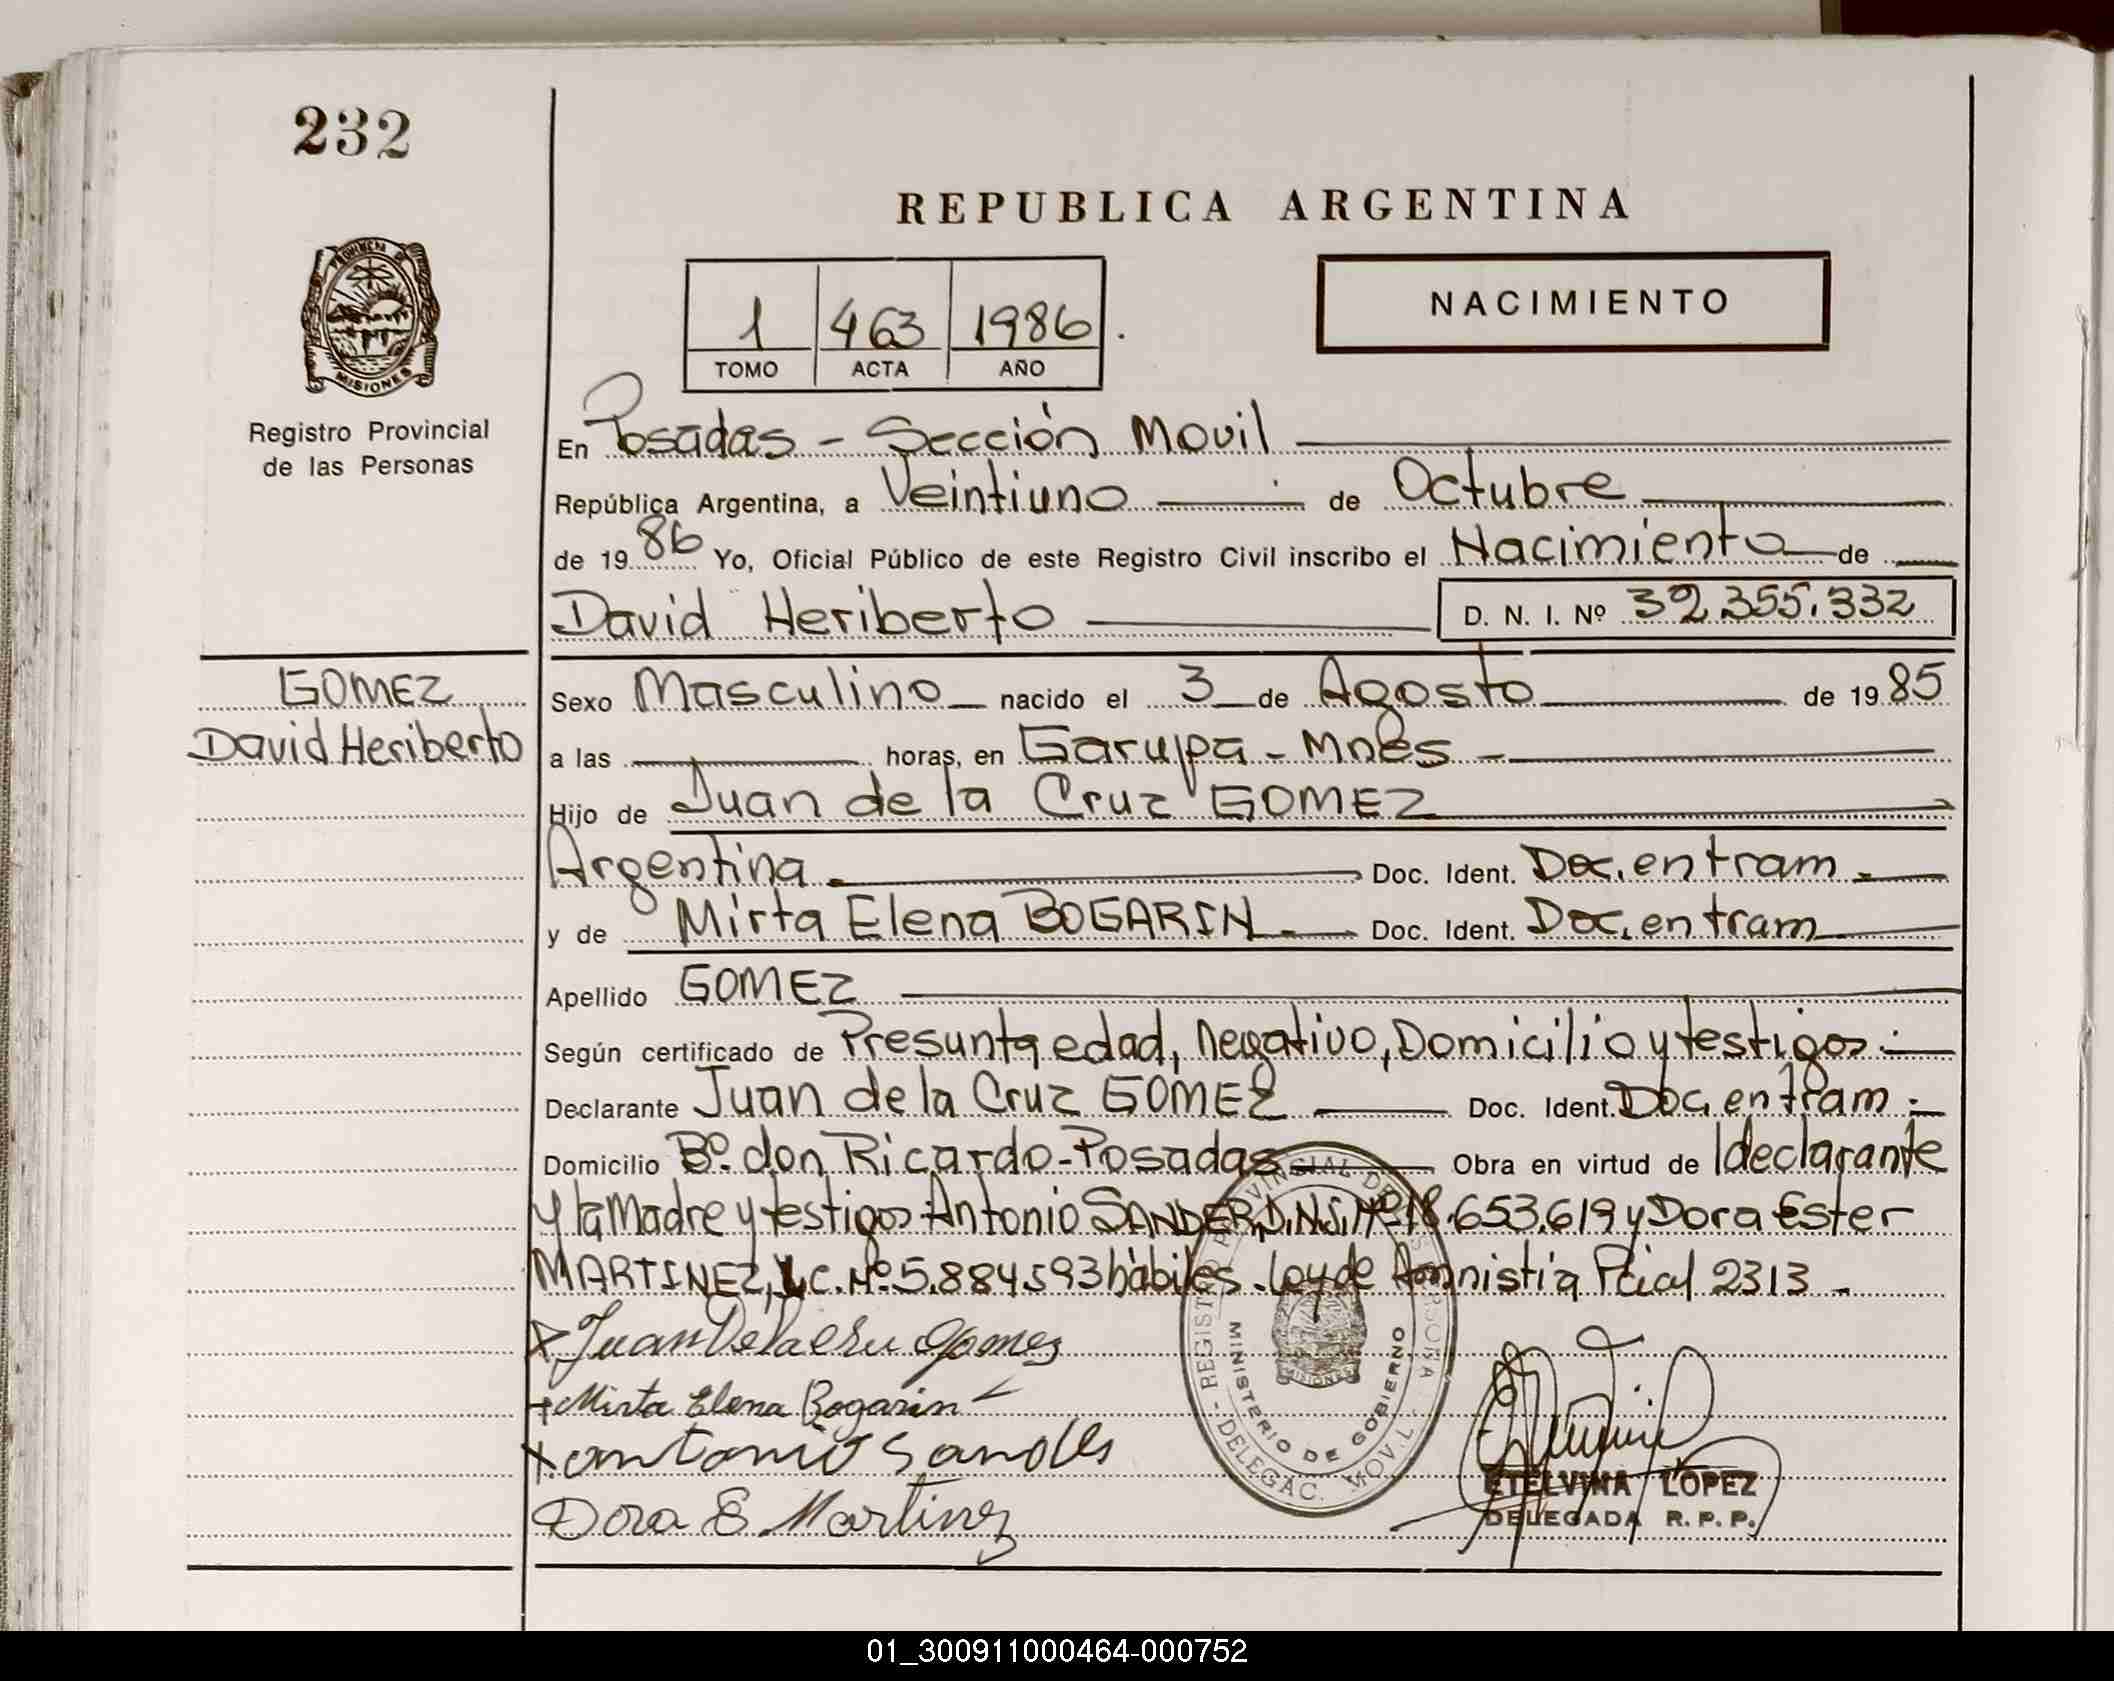 232
REPUBLICA ARGENTINA
PROVINCIA D
MISIONES
1 463 1986
TOMO ACTA AÑO
NACIMIENTO
Registro Provincial
de las Personas
En Posadas - Sección Movil
República Argentina, a Veintiuno de Octubre
de 1986 Yo, Oficial Público de este Registro Civil inscribo el Nacimiento de
David Heriberto D. N. I. Nº 32.355.332
GOMEZ
David Heriberto
Sexo Masculino nacido el 3 de Agosto de 1985
a las horas, en Garupa - Mnes -
Hijo de Juan de la Cruz GOMEZ
Argentina. Doc. Ident. Doc. en tram.
y de Mirta Elena BOGARIN. Doc. Ident. Doc. en tram
Apellido GOMEZ
Según certificado de Presunta edad, Negativo, Domicilio y testigos.-
Declarante Juan de la Cruz GOMEZ Doc. Ident. Doc. en tram.-
Domicilio Bº. don Ricardo - Posadas Obra en virtud de l declarante
y la Madre y testigos Antonio SANDER, D.N.I. Nº 18.653.619 y Dora Ester
MARTINEZ, L.C. Nº 5.884.593 hábiles. Ley de Amnistia Pcial 2313 -
x Juan Delacru Gomez
+ Mirta Elena Bogarin
x antonio Sander
Dora E Martinez
MINISTERIO DE GOBIERNO
DELEGAC. MOVIL
MISIONES
ETELVINA LOPEZ
DELEGADA R. P. P.
01_300911000464-000752